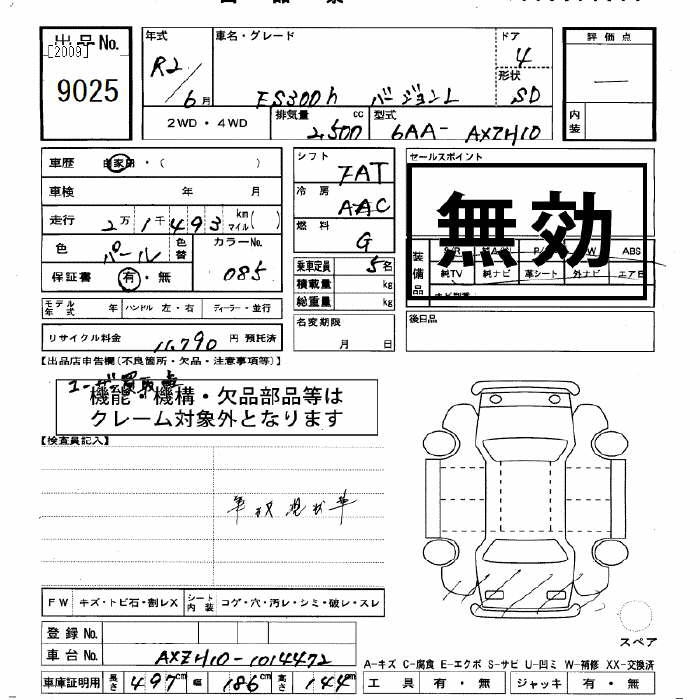 出品No.
[2009]
9025
年式
R2/6月
車名・グレード
ES300h バージョンL
ドア
4
形状
SD
評価点
—
内装
2WD・4WD
排気量
2,500 cc
型式
6AA-AXZH10
車歴 自家用・( )
車検 年 月
走行 2万1千493 km マイル( )
色 パール 色替 カラーNo. 085
保証書 有・無
シフト FAT
冷房 AAC
燃料 G
乗車定員 5名
積載量 kg
総重量 kg
セールスポイント
無効
装備品
ABS
純TV 純ナビ 革シート 外ナビ エアB
モデル年式 ハンドル 左・右 ディーラー・並行
リサイクル料金 11,790 円 預託済
名変期限
月 日
後日品
【出品店申告欄(不良箇所・欠品・注意事項等)】
ユーザー買取車
機能・機構・欠品部品等は
クレーム対象外となります
【検査員記入】
車両現状車
FW キズ・トビ石・割レX シート内装 コゲ・穴・汚レ・シミ・破レ・スレ
登録No.
車台No. AXZH10-1014472
車庫証明用 長さ 497cm 幅 186cm 高さ 144cm
スペア
A-キズ C-腐食 E-エクボ S-サビ U-凹ミ W-補修 XX-交換済
工具 有・無 ジャッキ 有・無